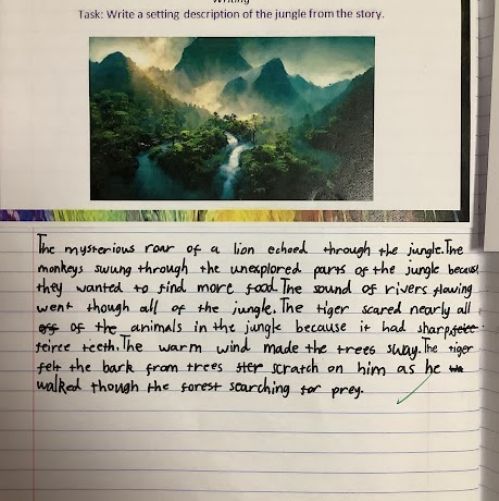 Writing
Task: Write a setting description of the jungle from the story.
The mysterious roar of a lion echoed through the jungle. The
monkeys swung through the unexplored parts of the jungle becaus
they wanted to find more food. The sound of rivers flowing
went though all of the jungle. The tiger scared nearly all
of the animals in the jungle because it had sharp,
feirce teeth. The warm wind made the trees sway. The tiger
felt the bark from trees scratch on him as he
walked though the forest searching for prey.